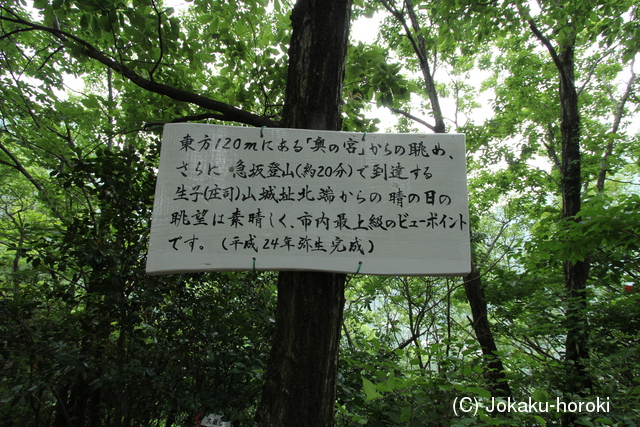 東方120mにある「奥の宮」からの眺め、
さらに 急坂登山(約20分)で到達する
生子(庄司)山城址北端からの 晴の日の
眺望は素晴しく、市内最上級のビューポイント
です。(平成24年弥生完成)
(C) Jokaku-horoki